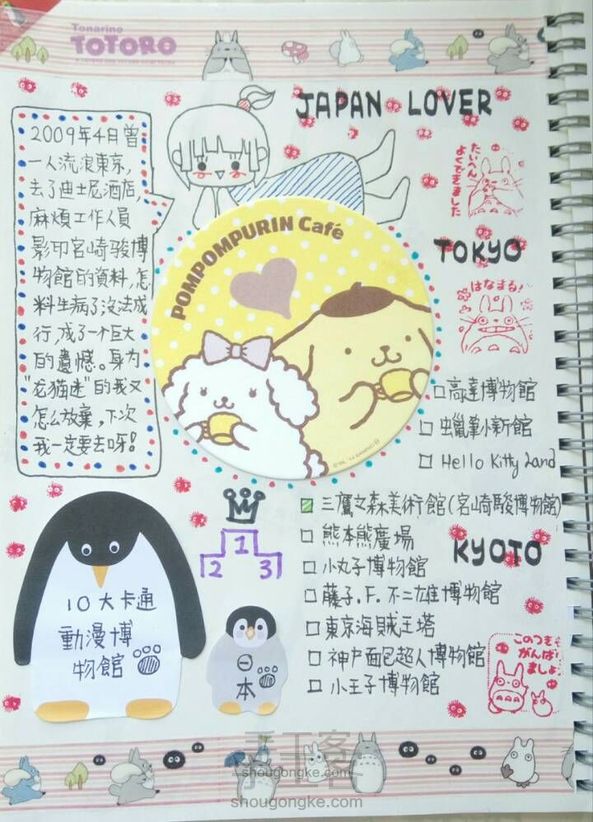 Tonarino
TOTORO
JAPAN LOVER
2009年4月曾
一人流浪東京,
去了迪士尼酒店,
麻煩工作人員
影印宮崎駿博
物館的資料,怎
料生病了沒法成
行,成了一个巨大
的遺憾。身为
"龙猫迷"的我又
怎么放棄,下次
我一定要去呀!
POMPOMPURIN Café
たいへん
よくできました
TOKYO
はなまる!
□高達博物館
□蠟筆小新館
□Hello Kitty Land
三鷹之森美術館(宮崎駿博物館)
□熊本熊廣場
KYOTO
□小丸子博物館
□藤子.F.不二雄博物館
□東京海賊王塔
□神戶面包超人博物館
□小王子博物館
1
2 3
10大卡通
動漫博
物館
日
本
このつぎも
がんば
ましょう
手工客
shougongke.com
shougongke.com